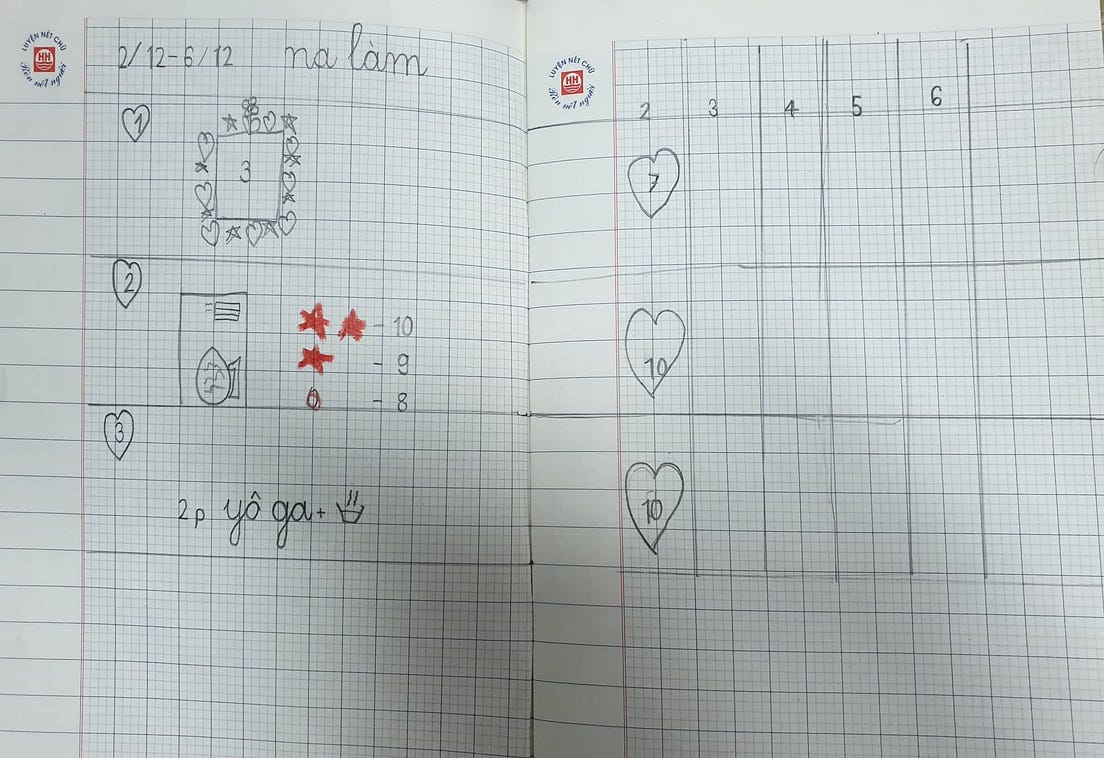 LUYỆN NÉT CHỮ
HH
Rèn nết người
2/12-6/12 na làm
1
3
2
- 10
- 9
0 - 8
3
2p yô ga +
LUYỆN NÉT CHỮ
HH
Rèn nết người
2 3 4 5 6
7
10
10